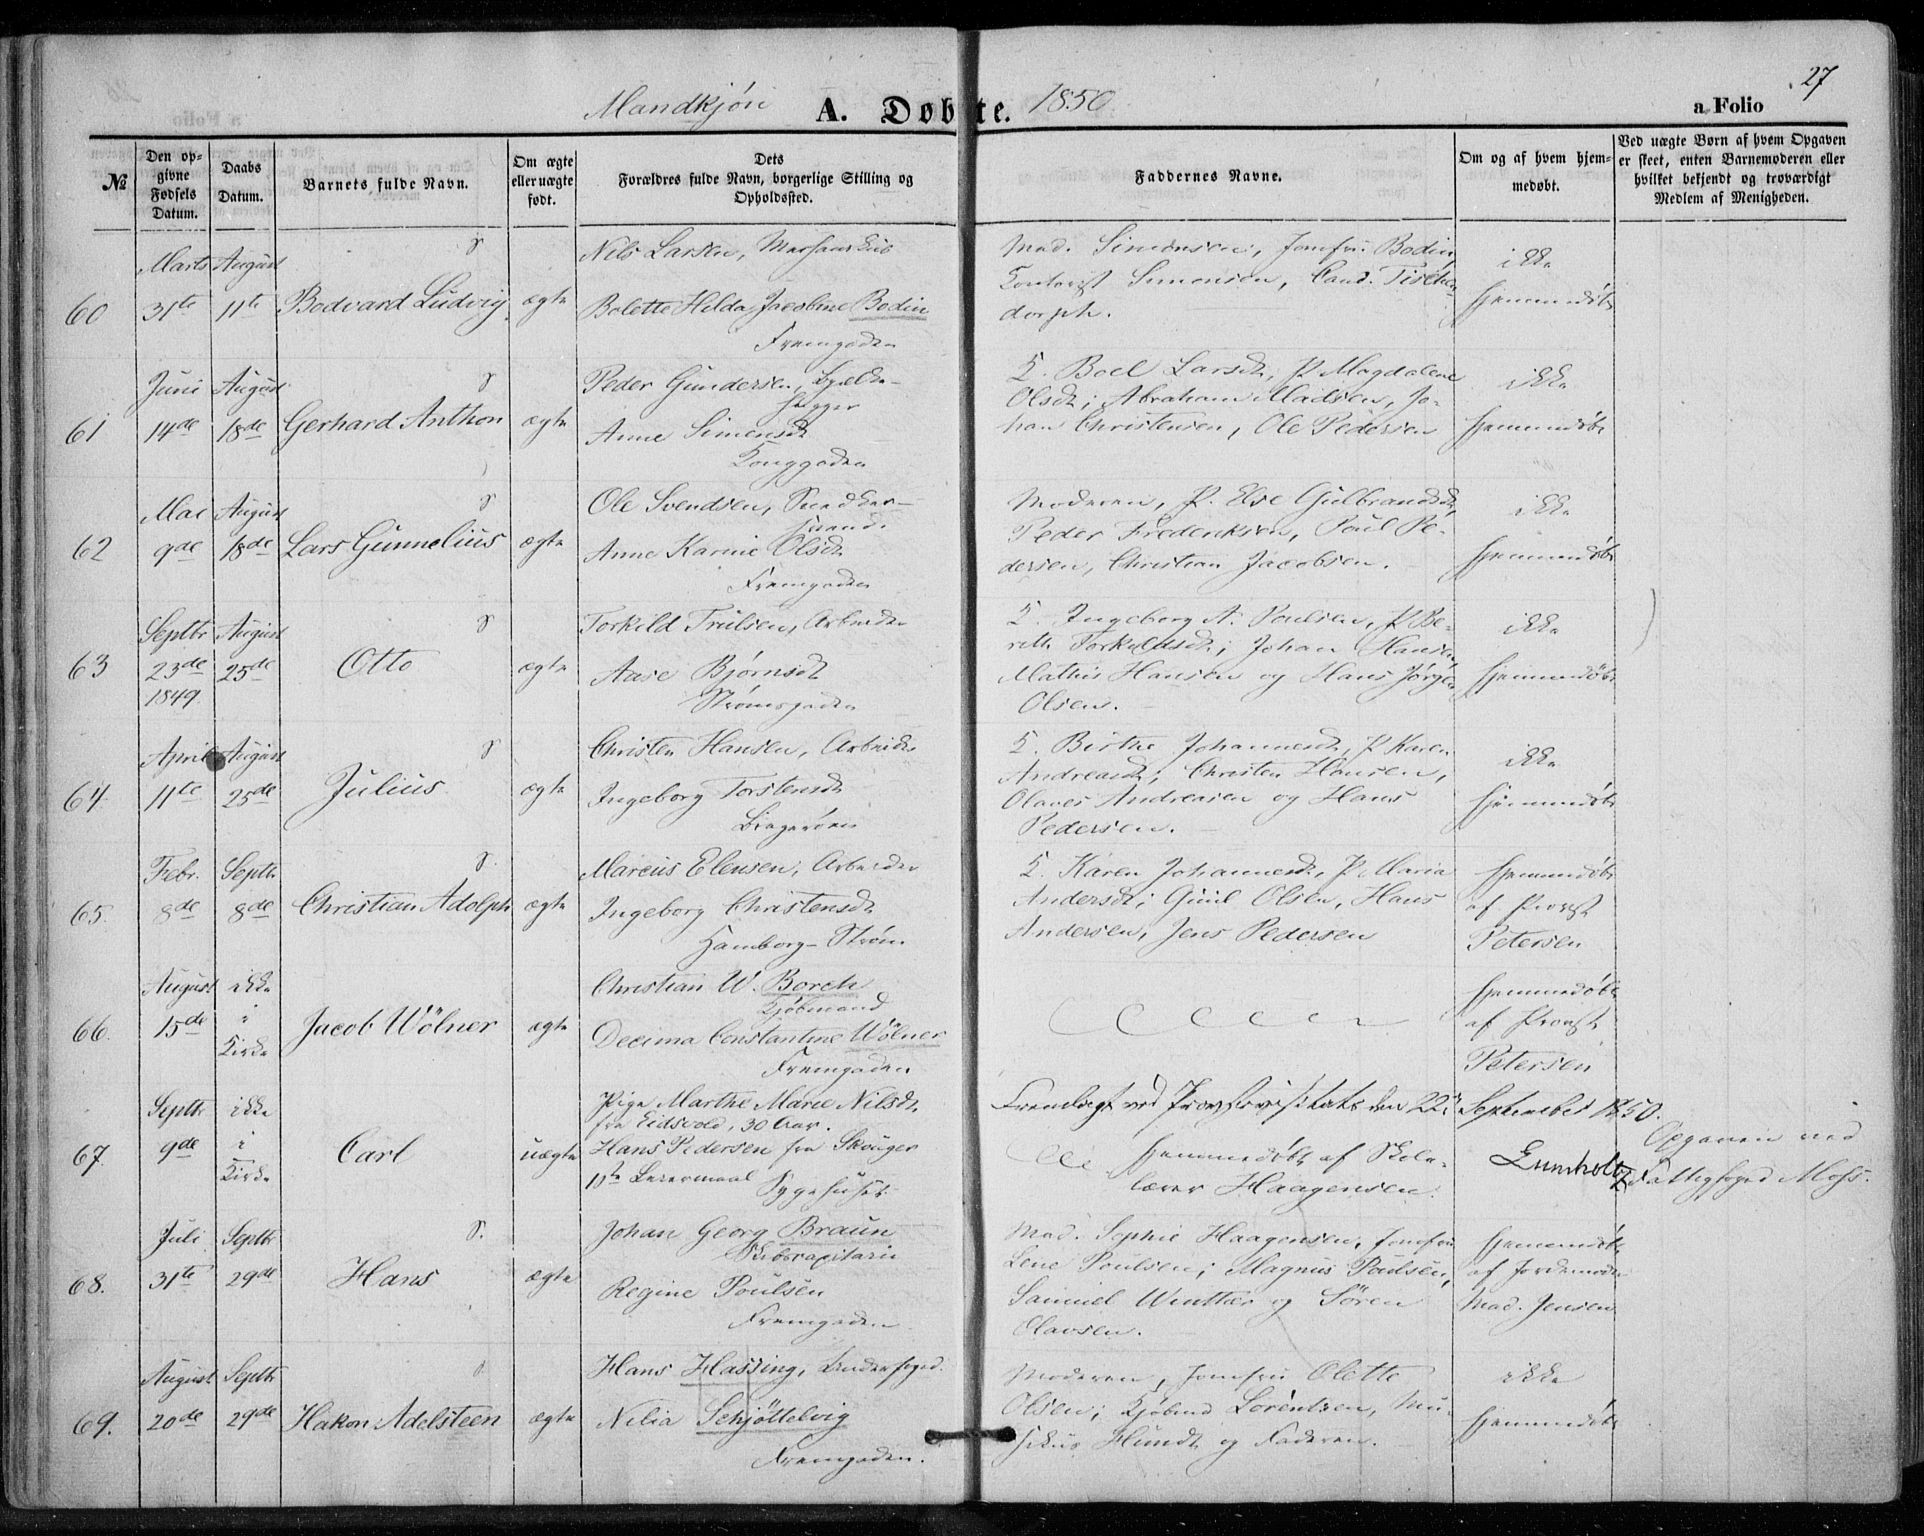 Mandkjön A. Døbte. 1850 a Folio 27
№
Den opgivne Fødsels Datum.
Daabs Datum.
Barnets fulde Navn.
Om ægte eller uægte født.
Dets Forældres fulde Navn, borgerlige Stilling og Opholdssted.
Faddernes Navne.
Om og af hvem hjemmedøbt.
Ved uægte Børn af hvem Opgaven er skeet, enten Barnemoderen eller hvilket bekjendt og troværdigt Medlem af Menigheden.
60
Marts 31te
August 11te
Bodvard Ludvig
ægte
Nils Larsen,
Bolette Hilda Jacobine Bodin
Fremgaden
Mad. Simonsen, Jomfru Bodin,
Kontorist Simonsen, Cand. Tischen-
dorph.
ikke
hjemmedøbt
61
Juni 14de
August 18de
Gerhard Anthon
ægte
Peder Gundersen, Bjælke-
hugger
Anne Simensdt
Konggaden
Boel Larsdt, P. Magdalene
Olsdt; Abraham Madsen, Jo-
han Christensen, Ole Pedersen
ikke
hjemmedøbt
62
Mai 9de
August 18de
Lars Gunnelius
ægte
Ole Svendsen, Snedker-
svend
Anne Karine Olsdt
Fremgaden
Moderen, P. Else Gulbrandsdt,
Peder Frederiksen, Poul Pe-
dersen, Christian Jacobsen.
ikke
hjemmedøbt
63
Septbr 23de 1849
August 25de
Otto
ægte
Torkild Trulsen, Arbeider
Aase Bjørnsdt
Strømsgaden
Ingeborg A. Poulsen, P. Be-
rith Torkildsdt; Johan Hansen
Mathis Hansen og Hans Jørgen
Olsen.
ikke
hjemmedøbt
64.
April 11te
August 25de
Julius
ægte
Christen Hansen, Arbeider
Ingeborg Torstensdt
Bragerøen
Birthe Johannesdt, P. Karen
Andreasdt; Christen Hansen,
Olaves Andreasen og Hans
Pedersen.
ikke
hjemmedøbt
65.
Febr. 8de
Septbr 8de
Christian Adolph
ægte
Marcus Elensen, Arbeider
Ingeborg Christensdt
Hamborg-Strøm
Karen Johannesdt, P. Maria
Andersdt; Guul Olsen, Hans
Andersen, Jens Pedersen
hjemmedøbt
af Provst
Petersen
66.
August 15de
ikke i Kirke
Jacob Wölner
ægte
Christian W. Borch
Kjøbmand
Decima Constantine Wölner
Fremgaden
hjemmedøbt
af Provst
Petersen
67
Septbr 9de
ikke i Kirke
Carl
uægte
Pige Marthe Marie Nilsdt
fra Eidsvold, 30 Aar.
Hans Pedersen fra Skouger
1ste Leiermaal Sygehuset
Fremlagt ved Provstevisitats den 22de September 1850.
Lumholtz
hjemmedøbt af Skole-
lærer Haagensen.
Opgaven ved
Fattigfoged Moss.
68.
Juli 31te
Septbr 29de
Hans
ægte
Johan Georg Braun
Skibscapitain
Regine Poulsen
Fremgaden
Mad. Sophie Haagensen, Jomfru
Lene Poulsen; Magnus Poulsen,
Samuel Winther og Sören
Olavsen.
hjemmedøbt
af Jordemoder
Mad. Jensen
69.
August 20de
Septbr 29de
Hakon Adelsteen
ægte
Hans Hassing, Underfoged.
Nilia Schjöttelvig
Fremgaden.
Moderen, Jomfru Olette
Olsen; Kjöbmd Lorentzen, Mu-
sikus Hundt og Faderen.
ikke
hjemmedøbt